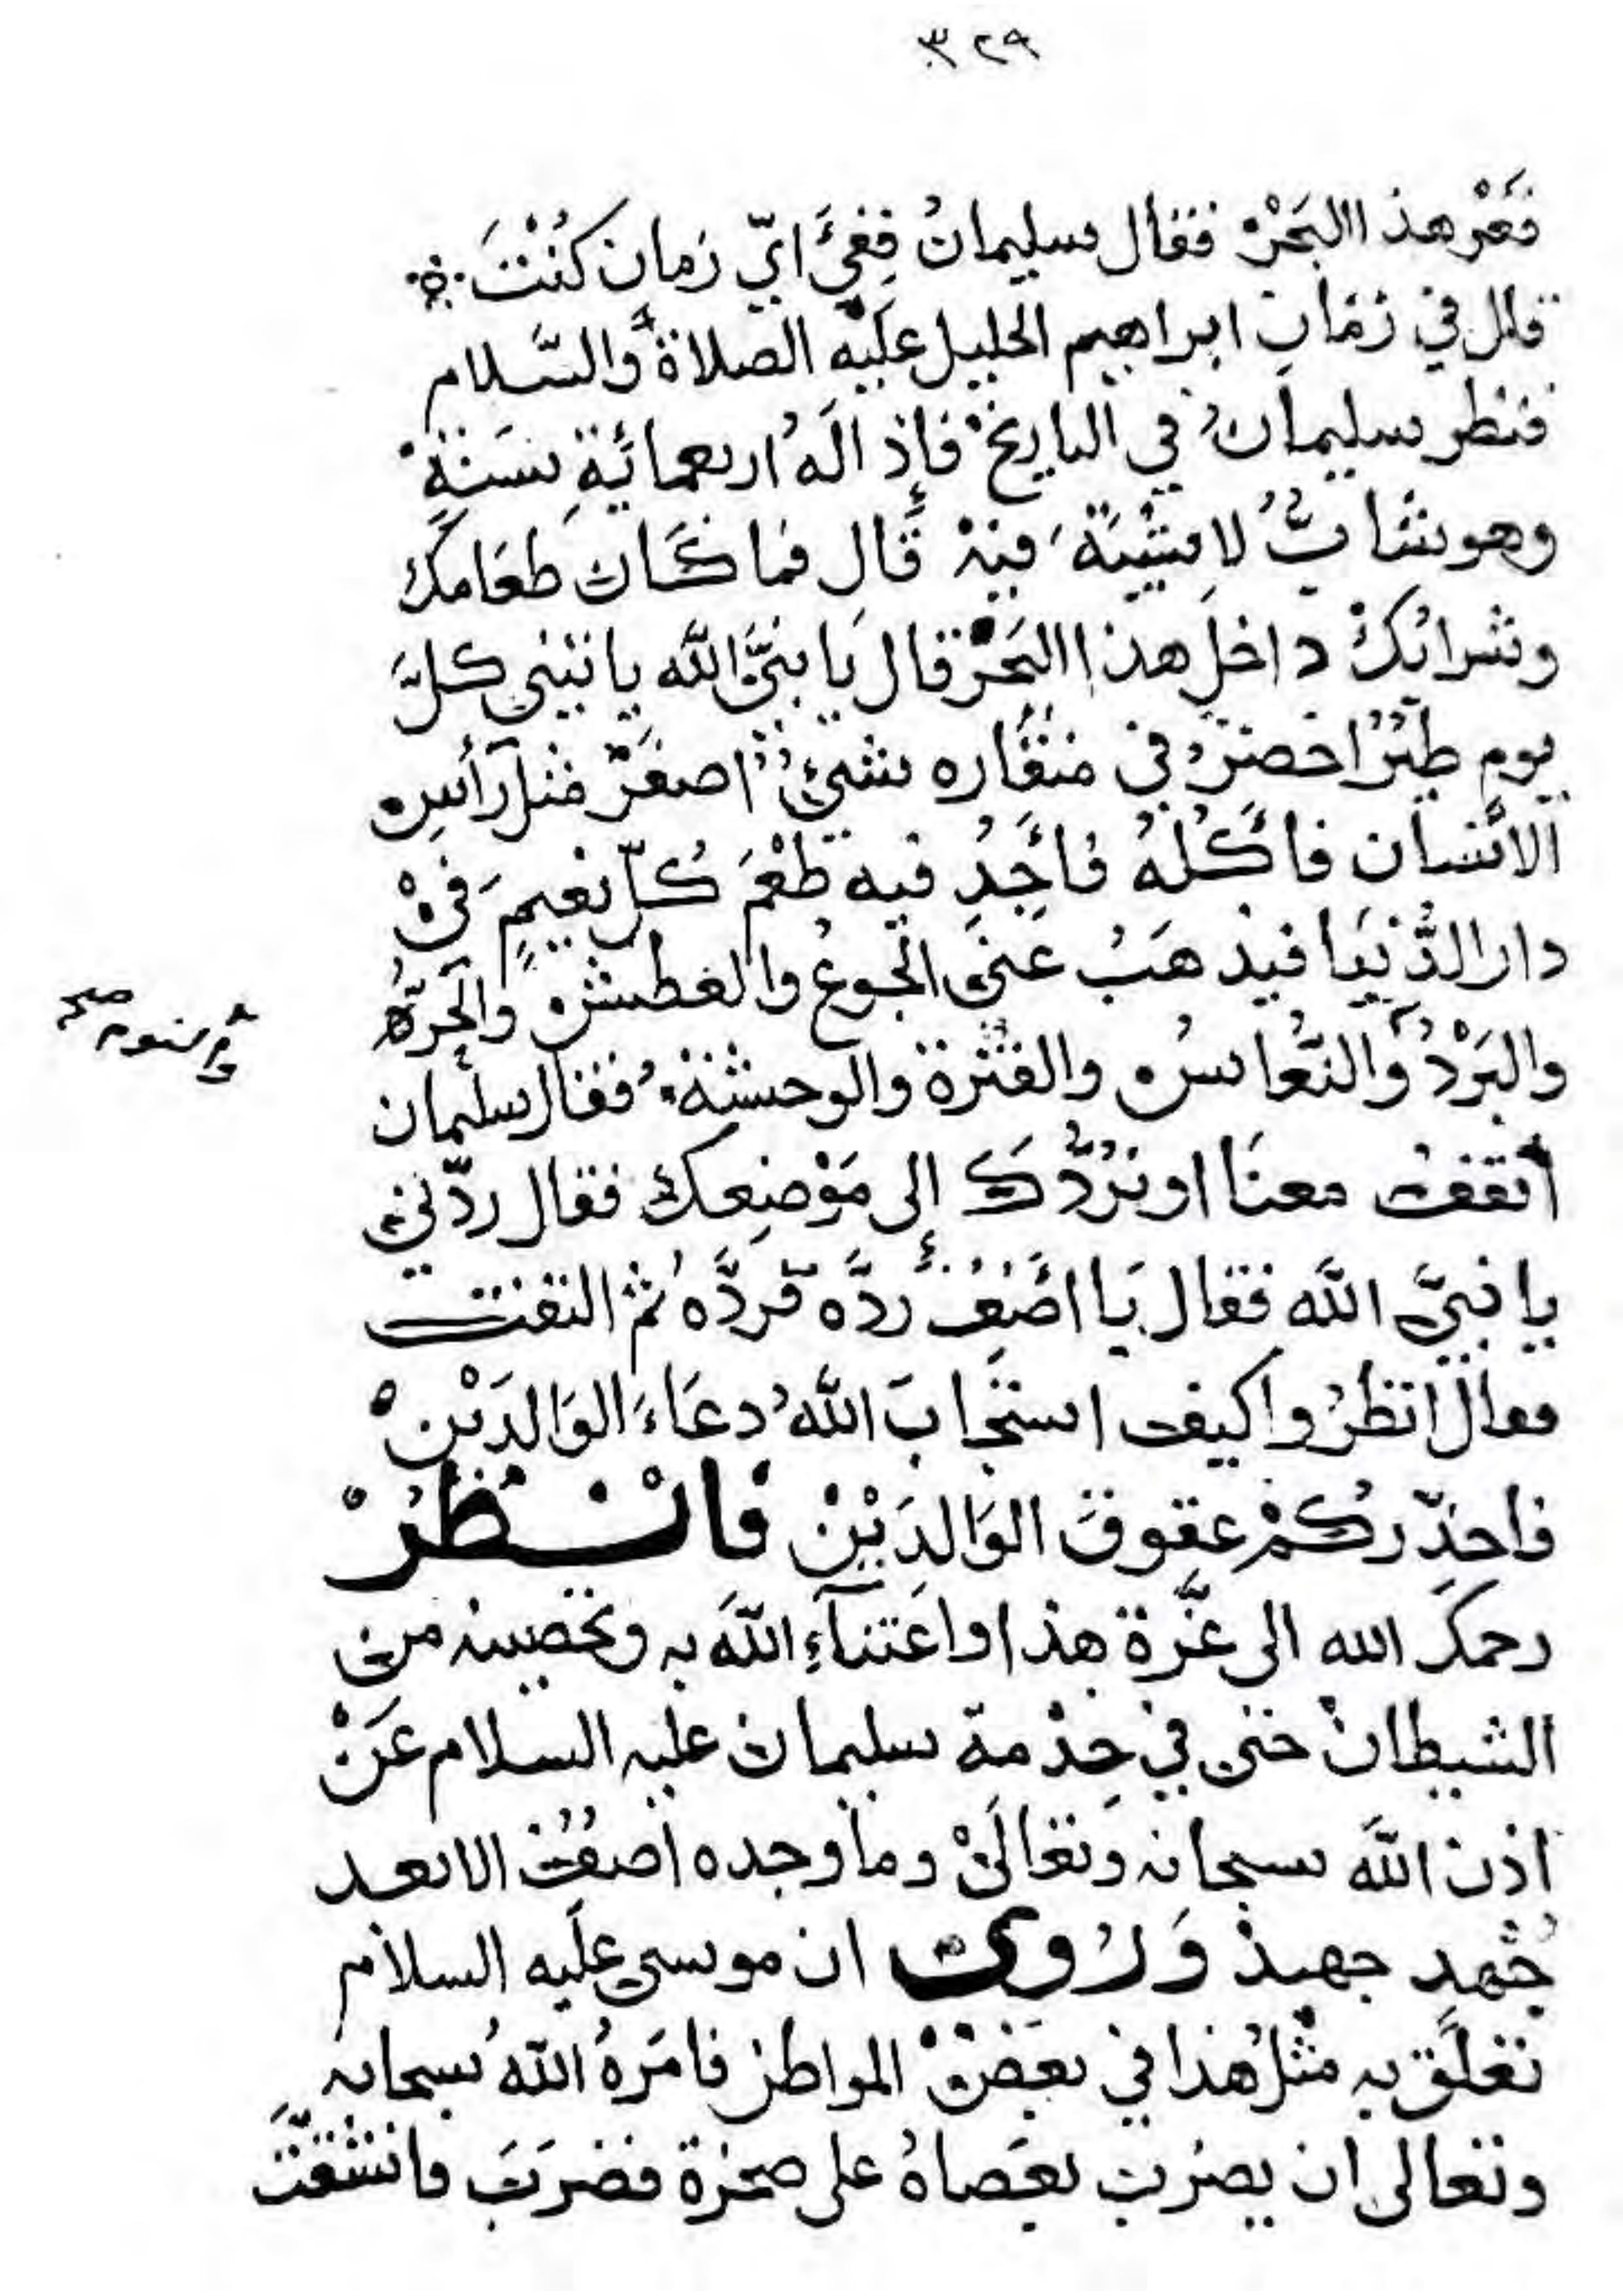 ٣٢٩
قعر هذا البحر فقال سليمان ففي ايّ زمان كنت
قال في زمان ابراهيم الخليل عليه الصلاة والسّلام
فنظر سليمان في التاريخ فإذا له اربعمائة سنة
وهو شابّ لا شيبة فيه قال فما كان طعامك
وشرابك داخل هذا البحر قال يا نبيّ الله ياتيني كلّ
يوم طير اخضر في منقاره شيئ اصفر مثل رأس
الانسان فآكله فأجد فيه طعم كلّ نعيم في
دار الدّنيا فيذهب عني الجوع والعطش والحرّ
والبرد والنّعاس والفترة والوحشة فقال سليمان
أتقف معنا او نردّك إلى موضعك فقال ردّني
يا نبيّ الله فقال يا اصف ردّه فردّه ثم التفت
فقال انظروا كيف استجاب الله دعاء الوالدين
فاحذّركم عقوق الوالدين فانظر
رحمك الله الى عزّة هذا واعتناء الله به وتحصينه من
الشيطان حتى في خدمة سليمان عليه السلام عن
اذن الله سبحانه وتعالى وما وجده اصف الا بعد
جهد جهيد وروي ان موسى عليه السلام
تعلّق به مثل هذا في بعض المواطن فامره الله سبحانه
وتعالى ان يضرب بعصاه على صخرة فضرب فانشقّت
والنوم صح